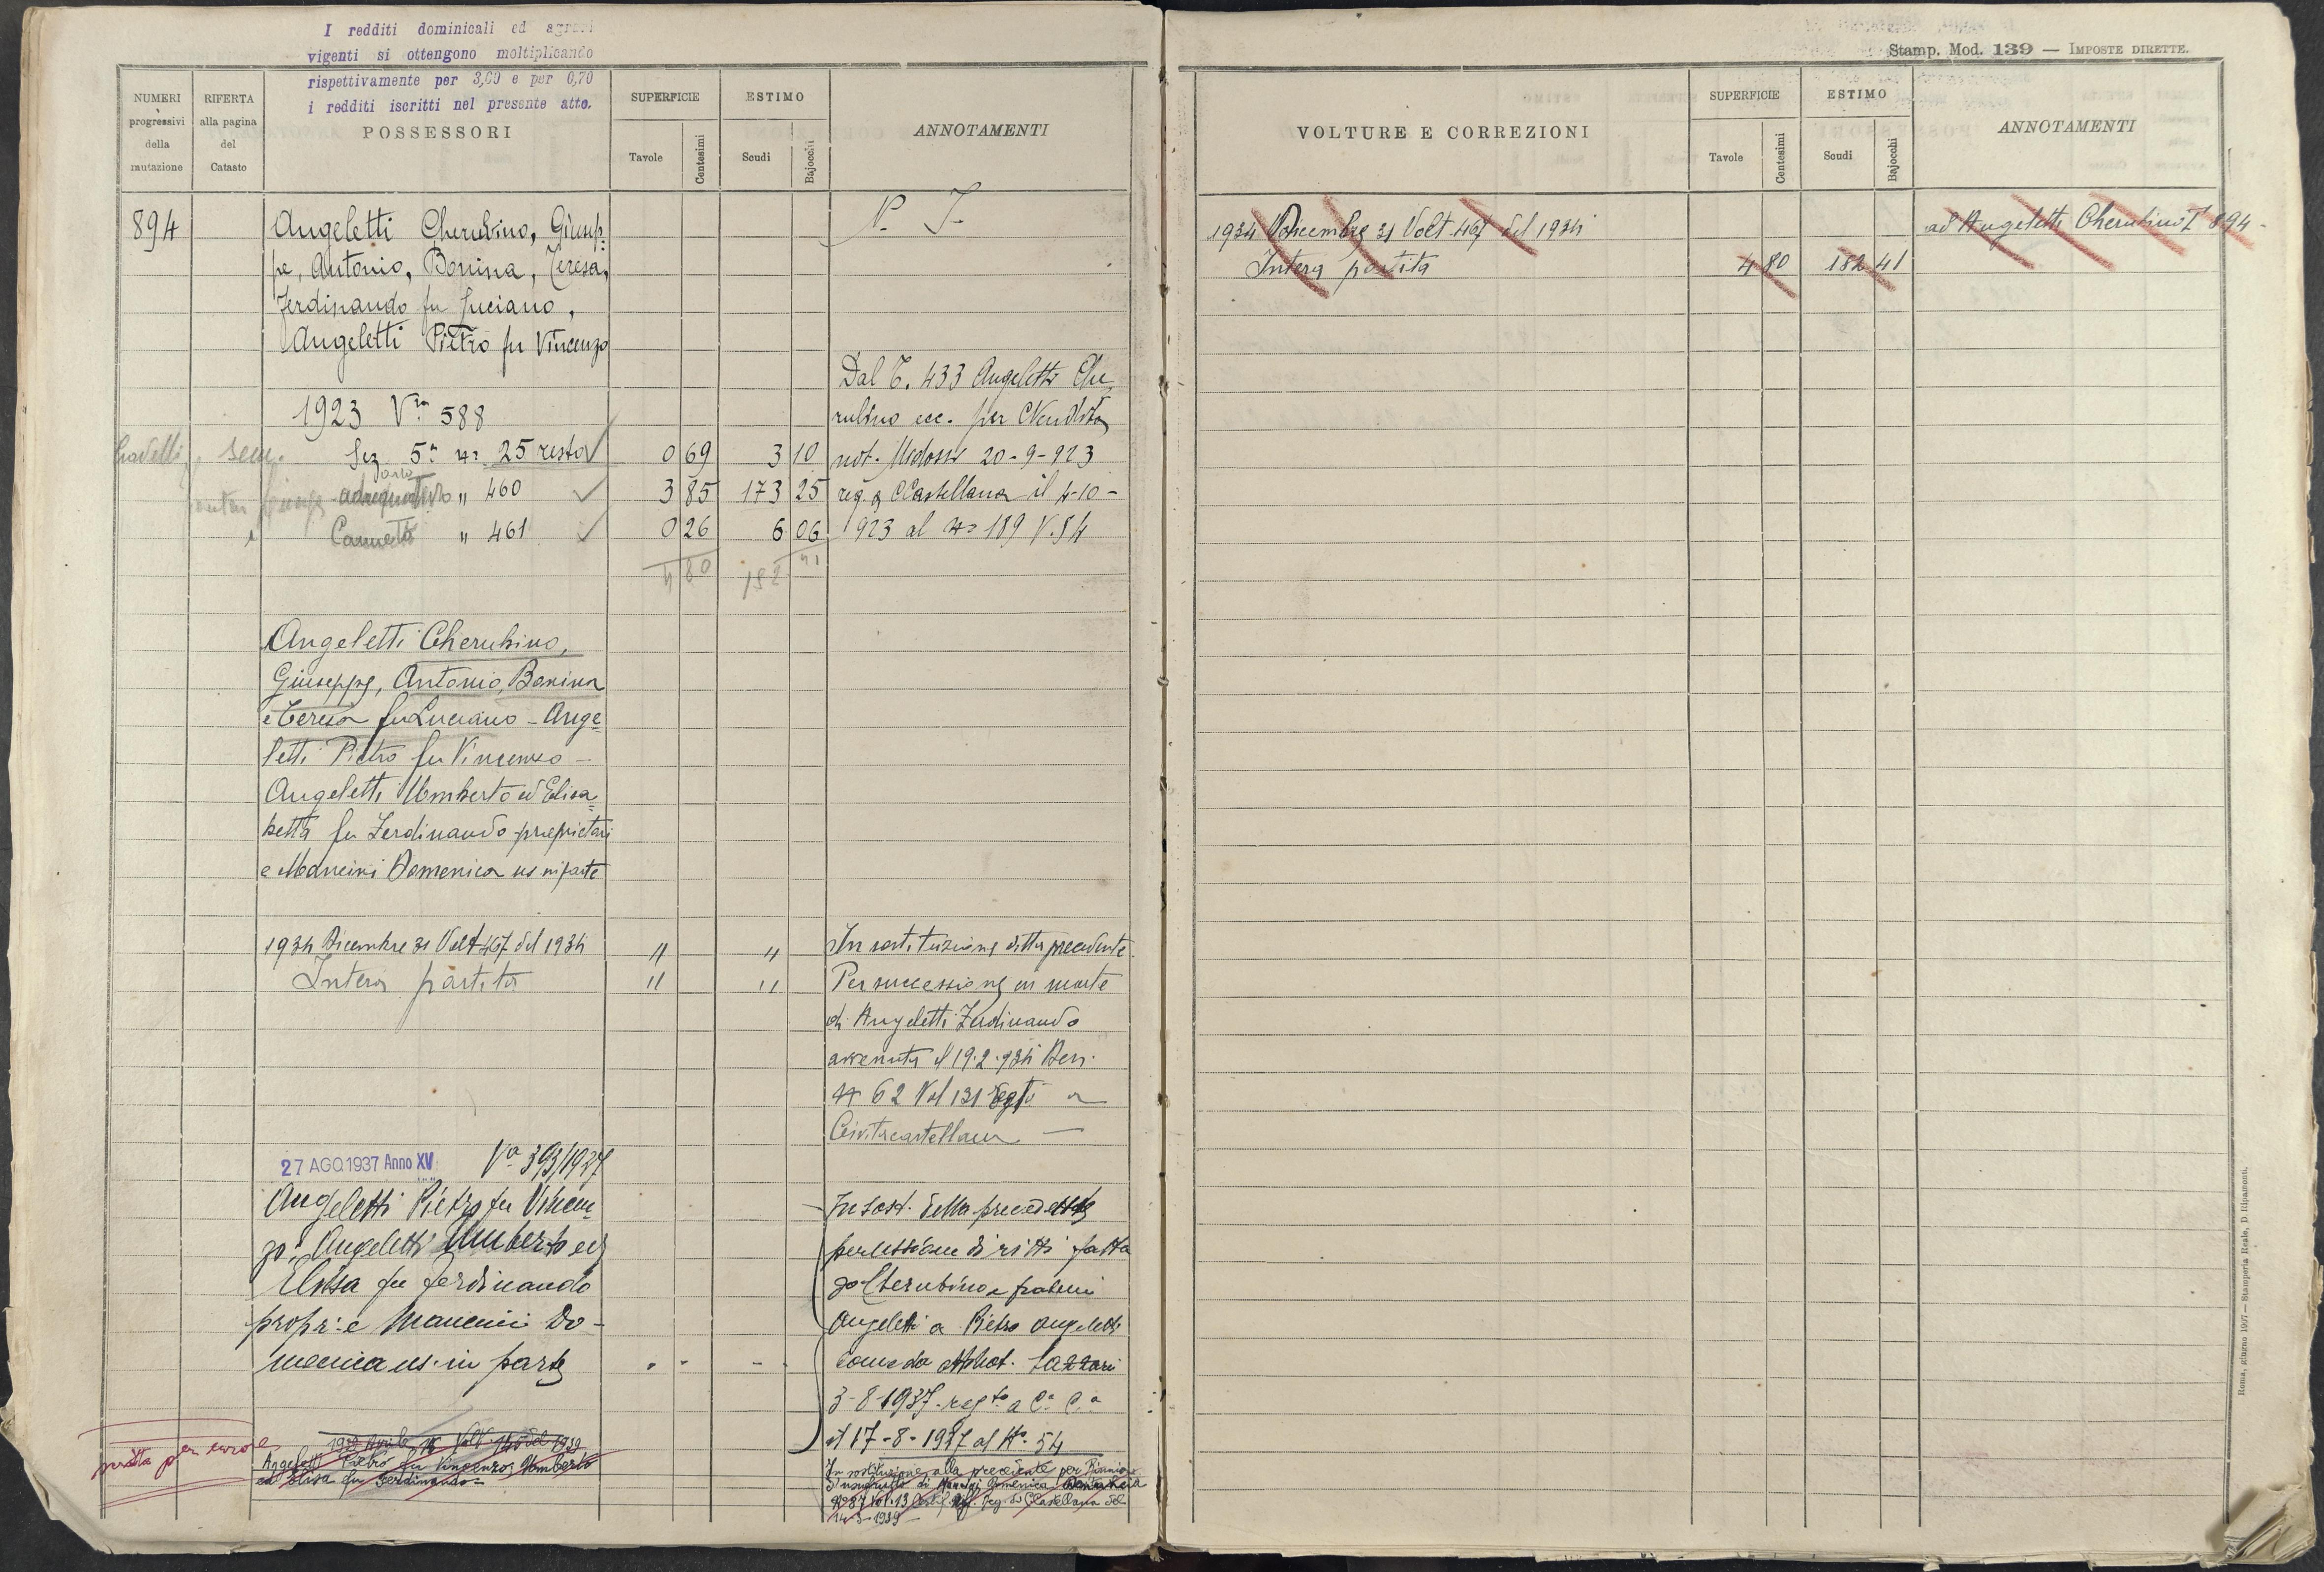 I redditi dominicali ed agrari
vigenti si ottengono moltiplicando
rispettivamente per 3,00 e per 0,70
i redditi iscritti nel presente atto.
NUMERI progressivi della mutazione
RIFERTA alla pagina del Catasto
POSSESSORI
SUPERFICIE
Tavole
Centesimi
ESTIMO
Scudi
Bajocchi
ANNOTAMENTI
N. T.
894
Angeletti Cherubino, Giusep-
pe, Antonio, Bonina, Teresa,
Ferdinando fu Luciano,
Angeletti Pietro fu Vincenzo
Dal T. 433 Angeletti Che
1923 Vra 588
rubino ecc. per Vendita
sem. Sez 5a no 25 resto 0 69 3 10 not. 20-9-923
460 3 85 173 25 reg. a CCastellana il 4-10-
Canneto " 461 0 26 6 06 923 al no 189 V. 84
4 80 182 41
Angeletti Cherubino,
Giuseppe, Antonio, Bonina
e Teresa fu Luciano - Ange=
letti Pietro fu Vincenzo -
Angeletti Umberto ed Elisa=
betta fu Ferdinando proprietari
e Mancini Domenica us in parte
1934 Dicembre 31 Volt 467 del 1934 " " In sostituzione ditta precedente.
Intera partita " " Per successione in morte
di Angeletti Ferdinando
avvenuta il 19.2.934 Den.
No 62 Vol 131 Regto a
Civitacastellana —
27 AGO.1937 Anno XV Va 393/1937
Angeletti Pietro fu Vincen- In sost. della precedente
zo; Angeletti Umberto ed per cessione diritti fatta
Elisa fu Ferdinando da Cherubino e fratelli
propr: e Mancini Do- Angeletti a Pietro Angeletti
menica us. in parte come da atto not. Lazzari
3-8-1937 regto a Ca Ca
il 17-8-1937 al No 54
scritta per errore
1939 Aprile 15 Volt. del 1939
Angeletti Pietro fu Vincenzo; Umberto
ed Elisa fu Ferdinando =
In sostituzione alla precedente per Riunione
d'usufrutto di Mancini Domenica
No 87 Vol. 13 Uff. Reg. di CCastellana del
14-3-1939 -
Stamp. Mod. 139 — IMPOSTE DIRETTE.
VOLTURE E CORREZIONI
SUPERFICIE
Tavole
Centesimi
ESTIMO
Scudi
Bajocchi
ANNOTAMENTI
1934 Dicembre 31 Volt 467 del 1934 ad Angeletti Cherubino T 894 -
Intera partita 4 80 182 41
Roma, giugno 1907 — Stamperia Reale, D. Ripamonti.